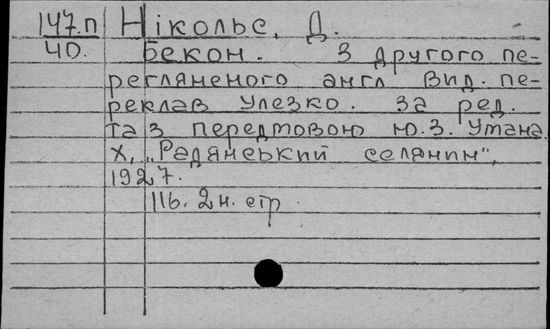 147.п Нікольс, Д.
40. Бекон. З другого пе-
регляненого англ вид. пе-
реклав Улезко. За ред.
та з передмовою Ю.З. Умана
Х, „Радянський селянин",
1927.
116. 2н. стр.